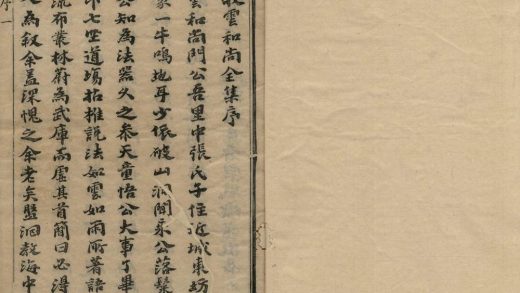 雲和尚全集序
雲和尚門公吾里中張氏子住近城東紡
家一牛鳴地耳少依破山洞聞乘公落髮
公知為法器久之參天童悟公大事了畢
印七坐道場拈椎說法如雲如雨所著語
流布叢林蔚為武庫而虛其首簡曰必得
為敘余蓋深愧之余老矣盤洄教海中
序一